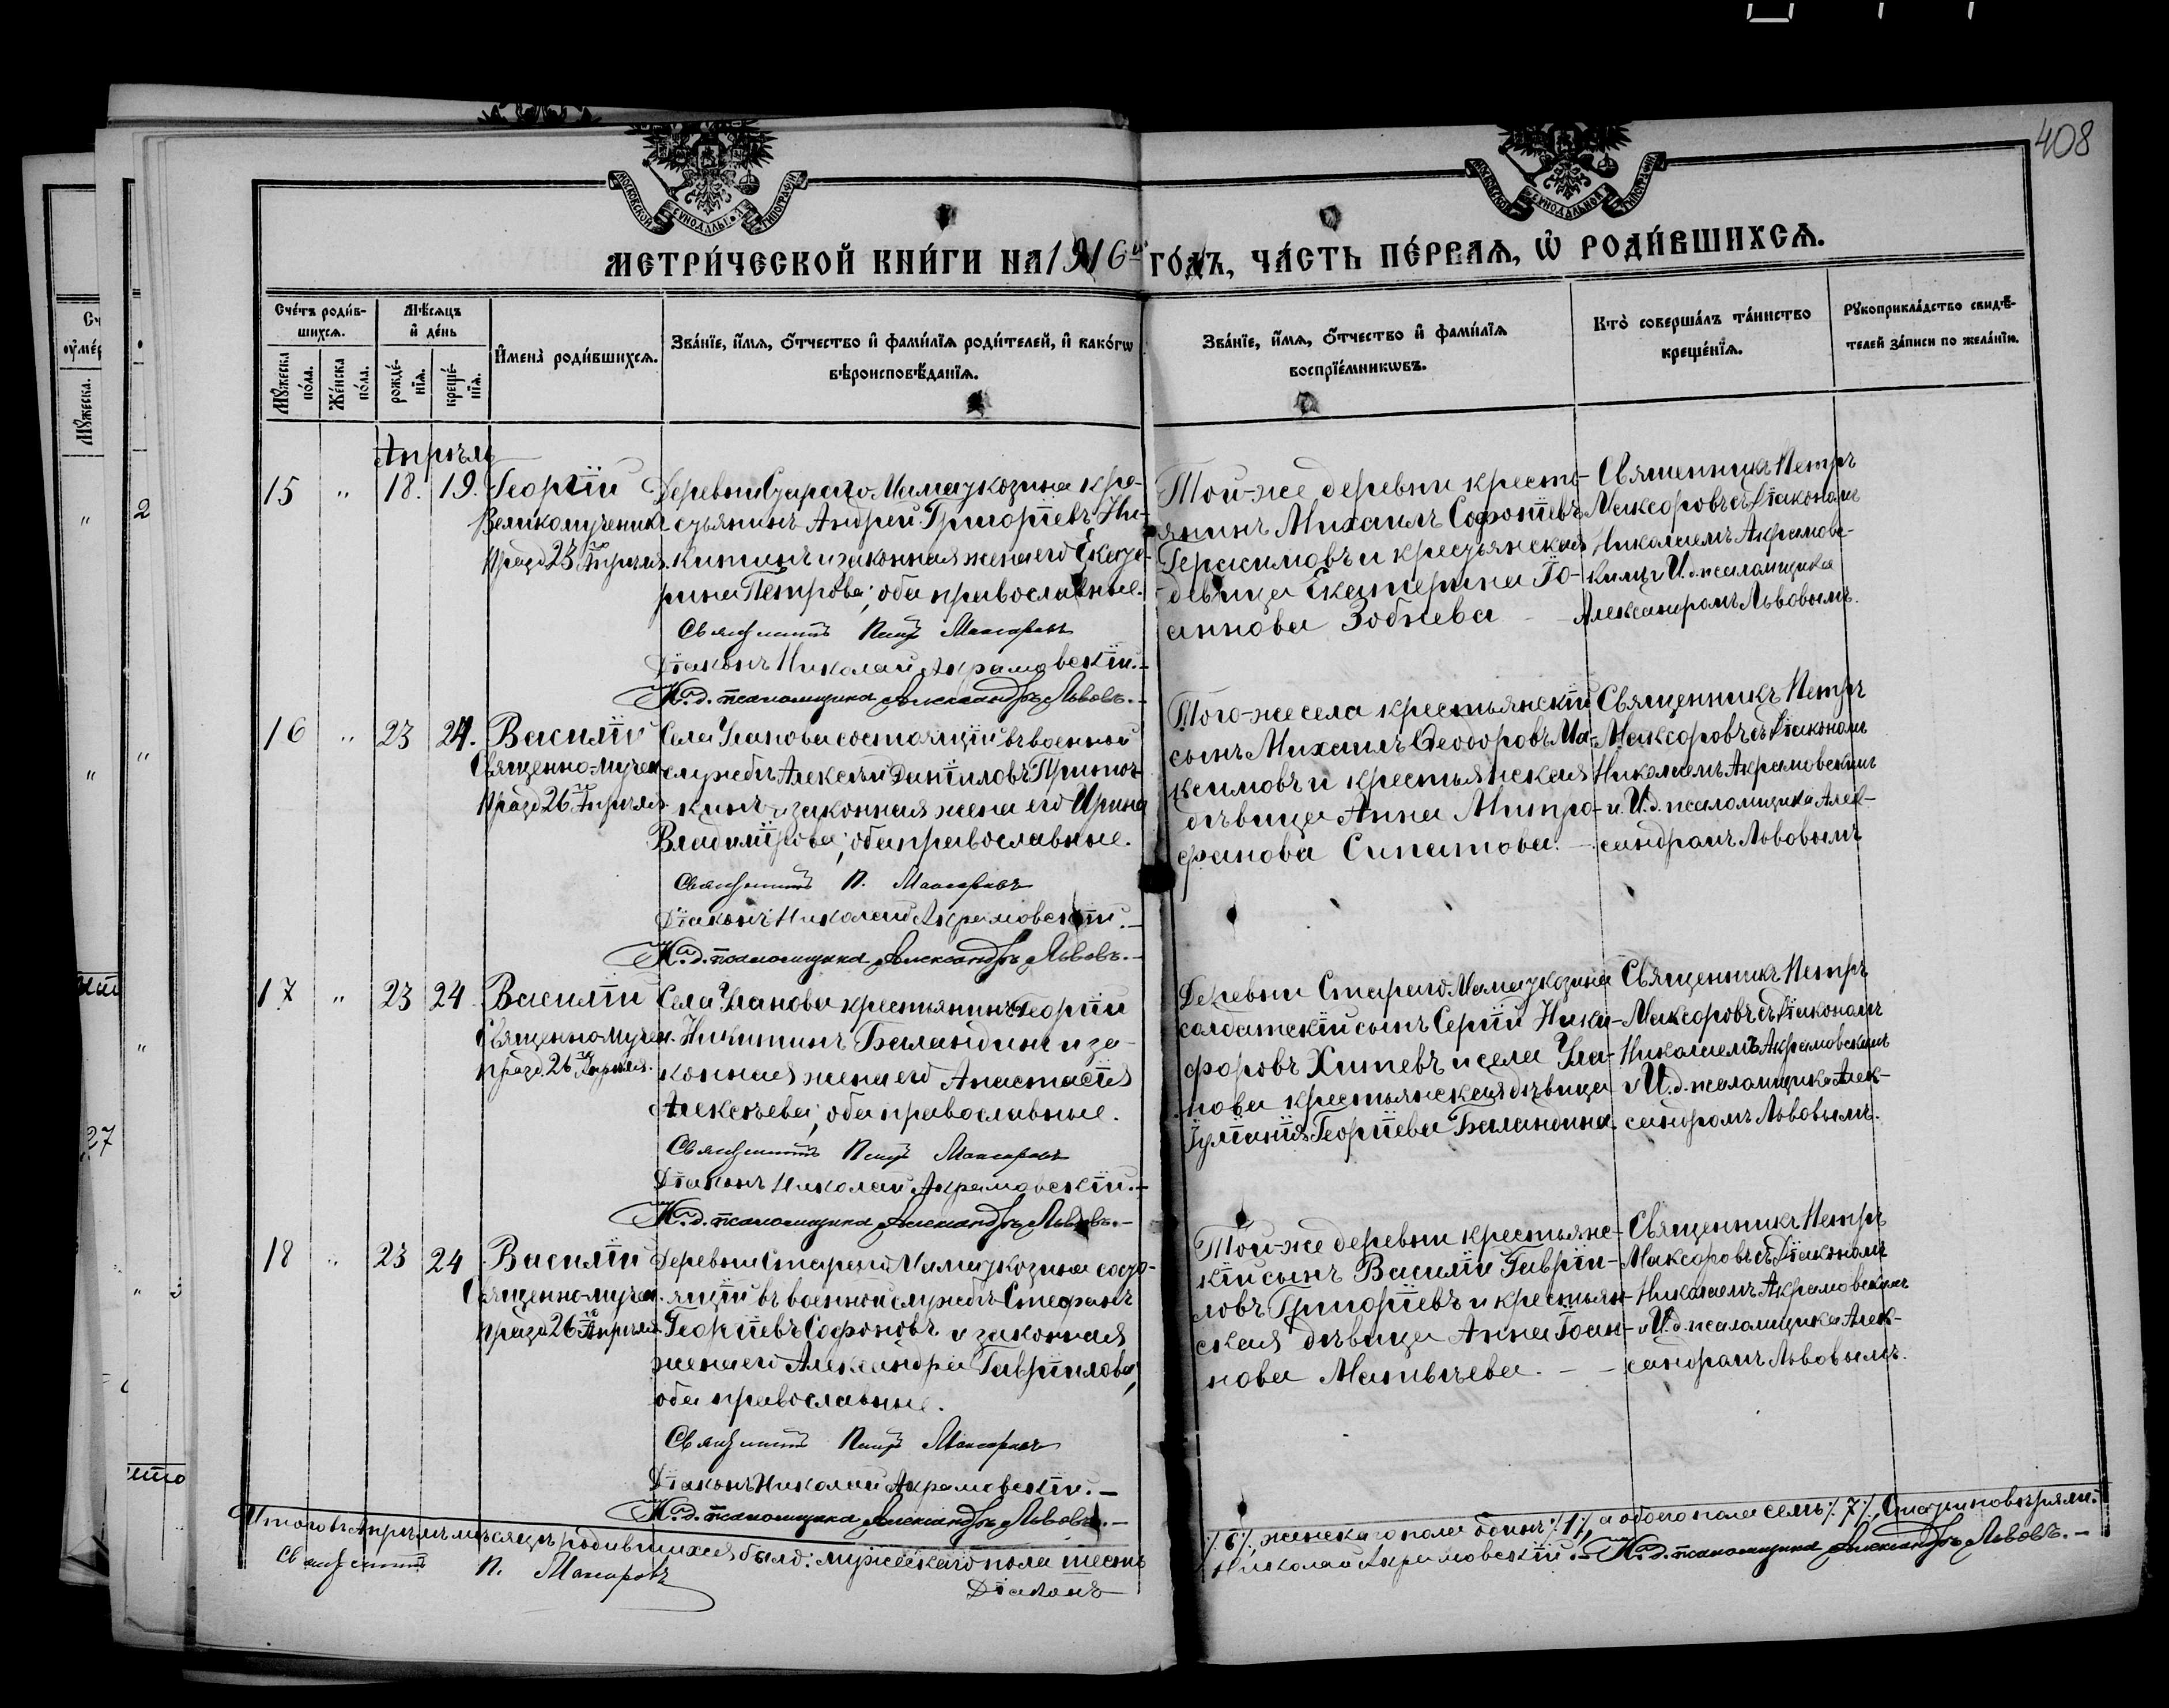 408
МОСКОВСКОЙ СѴНОДАЛЬНОЙ ТИПОГРАФІИ
МОСКОВСКОЙ СѴНОДАЛЬНОЙ ТИПОГРАФІИ
МЕТРИ́ЧЕСКОЙ КНИ́ГИ НА 1916й ГО́ДЪ, ЧА́СТЬ ПЕ́РВАѦ, Ѡ҆ РОДИ́ВШИХСѦ.
Сче́тъ роди́в-
шихсѧ.
Мꙋ́жеска по́ла.
Же́нска по́ла.
Мѣ́сѧцъ
и҆ де́нь
рожде́-
нїѧ.
креще́-
нїѧ.
И҆мена̀ роди́вшихсѧ.
Зва́нїе, и҆́мѧ, ѻ҆́тчество и҆ фами́лїѧ роди́телей, и҆ како́гѡ
вѣроисповѣ́данїѧ.
Зва́нїе, и҆́мѧ, ѻ҆́тчество и҆ фами́лїѧ
воспрїе́мникѡвъ.
Кто̀ соверша́лъ та́инство
креще́нїѧ.
Рꙋкоприкла́дство свидѣ́-
телей за́писи по жела́нїю.
Апрѣль
15 " 18. 19. Георгій
Великомученикъ
празд 23 го Апрѣля.
Деревни Стараго Мамаукозина кре-
стьянинъ Андрей Григоріевъ Ни-
китинъ и законная жена его Екате-
рина Петрова; оба православные.
Священникъ Петръ Максоровъ
Діаконъ Николай Акрамовскій.
И. д. псаломщика Александръ Львовъ.
Той-же деревни кресть-
янинъ Михаилъ Софоніевъ
Герасимовъ и крестьянская
дѣвица Екатерина Іо-
аннова Зобнева
Священникъ Петръ
Максоровъ съ Діакономъ
Николаемъ Акрамовс-
кимъ и И. д. псаломщика
Александромъ Львовымъ.
16 " 23 24. Василій
Священно-мучен.
празд 26 го Апрѣля
Села Уланова состоящій въ военной
службѣ Алексѣй Даніиловъ
и законная жена его Ирина
Владимірова; оба православные.
Священникъ П. Максоровъ
Діаконъ Николай Акрамовскій.
И. д. псаломщика Александръ Львовъ.
Того-же села крестьянскій
сынъ Михаилъ Ѳеодоровъ Ма-
ксимовъ и крестьянская
дѣвица Анна Митро-
фанова Сипатова.
Священникъ Петръ
Максоровъ съ Діакономъ
Николаемъ Акрамовскимъ
и И. д. псаломщика Алек-
сандромъ Львовымъ
17 " 23 24 Василій
Священно-мучен.
празд. 26 го Апрѣля.
Села Уланова крестьянинъ Георгій
Никитинъ Баландинъ и за-
конная жена его Анастасія
Алексѣева; оба православные.
Священникъ Петръ Максоровъ
Діаконъ Николай Акрамовскій.
И. д. псаломщика Александръ Львовъ.
Деревни Стараго Мамаукозина
солдатскій сынъ Сергій Ники-
форовъ Хитевъ и села Ула-
нова крестьянская дѣвица
Іуліанія Георгіева Баландина
Священникъ Петръ
Максоровъ съ Діакономъ
Николаемъ Акрамовскимъ
и И. д. псаломщика Алек-
сандромъ Львовымъ.
18 " 23 24 Василій
Священно-мучен.
празд 26 го Апрѣля
Деревни Стараго Мамаукозина состо-
ящій въ военной службѣ Стефанъ
Георгіевъ Софоновъ и законная
жена его Александра Гавріилова;
оба православные.
Священникъ Петръ Максоровъ
Діаконъ Николай Акрамовскій.
И. д. псаломщика Александръ Львовъ.
Той-же деревни крестьянс-
кій сынъ Василій Гавріи-
ловъ Григоріевъ и крестьян-
ская дѣвица Анна Іоан-
нова Матычева.
Священникъ Петръ
Максоровъ съ Діакономъ
Николаемъ Акрамовскимъ
и И. д. псаломщика Алек-
сандромъ Львовымъ.
Итого въ Апрѣлѣ мѣсяцѣ родившихся было: мужескаго пола шесть
/6/, женскаго пола одинъ /1/, а обоего пола семь /7/.
Священникъ П. Максоровъ
Діаконъ
Николай Акрамовскій. И. д. псаломщика Александръ Львовъ.